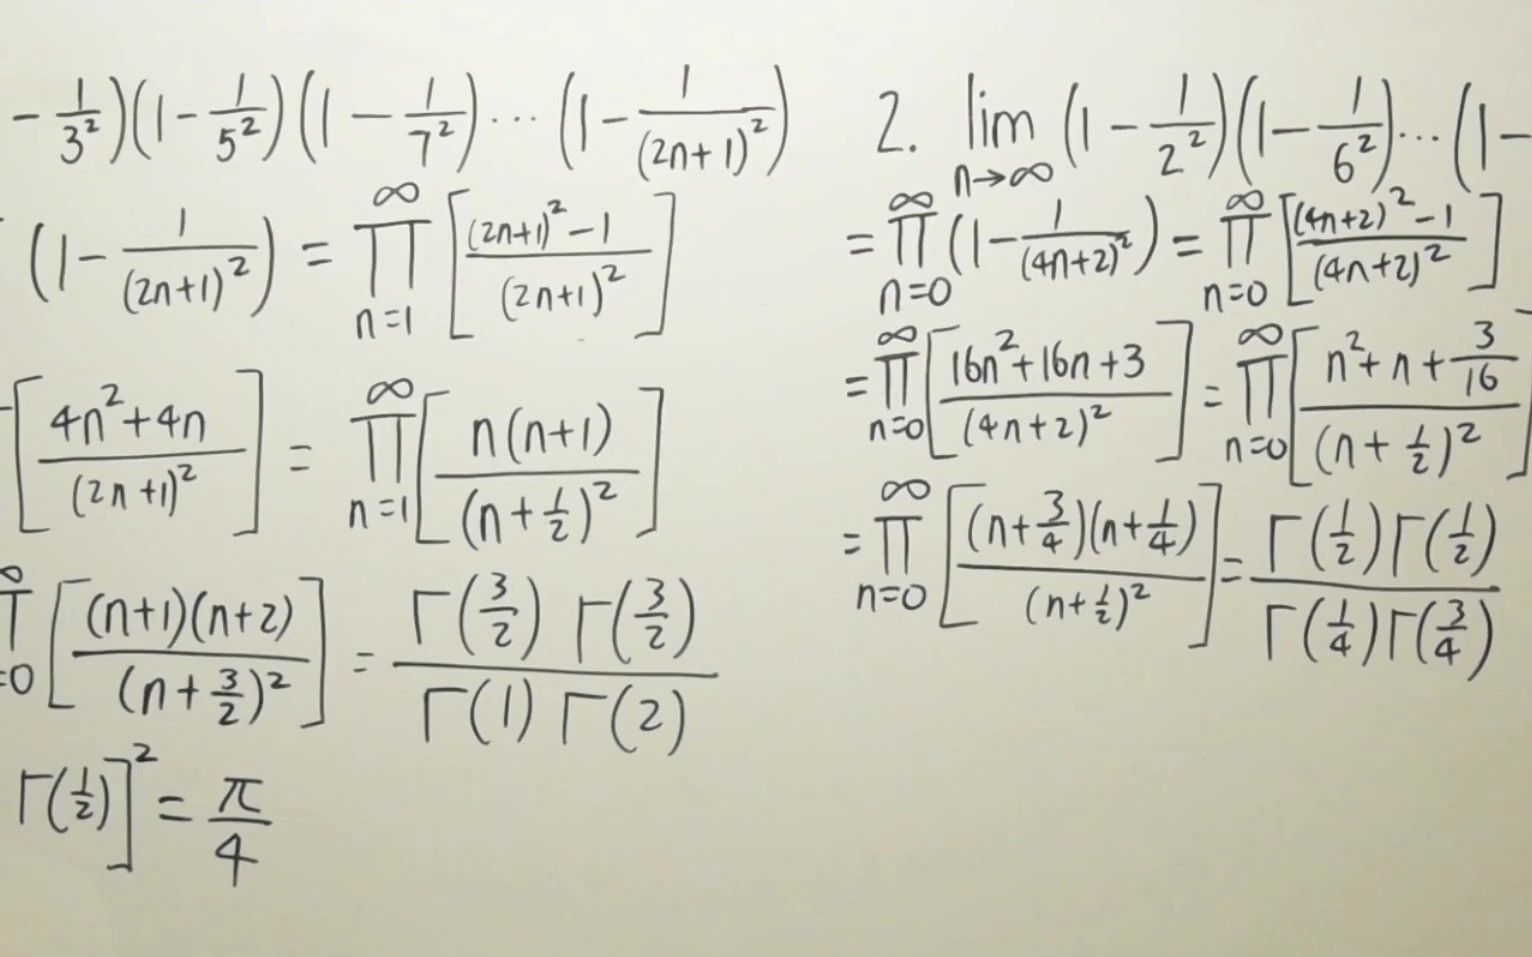 - 1/3² )(1 - 1/5² )(1 - 1/7² ) ··· (1 - 1/(2n+1)² )
(1 - 1/(2n+1)² ) = ∏_{n=1}^{∞} [ ((2n+1)² - 1)/(2n+1)² ]
[ (4n² + 4n)/(2n+1)² ] = ∏_{n=1}^{∞} [ n(n+1)/(n + 1/2)² ]
∏_{=0}^{∞} [ (n+1)(n+2)/(n + 3/2)² ] = Γ(3/2) Γ(3/2) / Γ(1) Γ(2)
Γ(1/2) ]² = π/4
2. lim_{n→∞} (1 - 1/2² )(1 - 1/6² ) ··· (1 -
= ∏_{n=0}^{∞} (1 - 1/(4n+2)² ) = ∏_{n=0}^{∞} [ ((4n+2)² - 1)/(4n+2)² ]
= ∏_{n=0}^{∞} [ (16n² + 16n + 3)/(4n+2)² ] = ∏_{n=0}^{∞} [ (n² + n + 3/16)/(n + 1/2)² ]
= ∏_{n=0}^{∞} [ (n + 3/4)(n + 1/4)/(n + 1/2)² ] = Γ(1/2) Γ(1/2) / Γ(1/4) Γ(3/4)